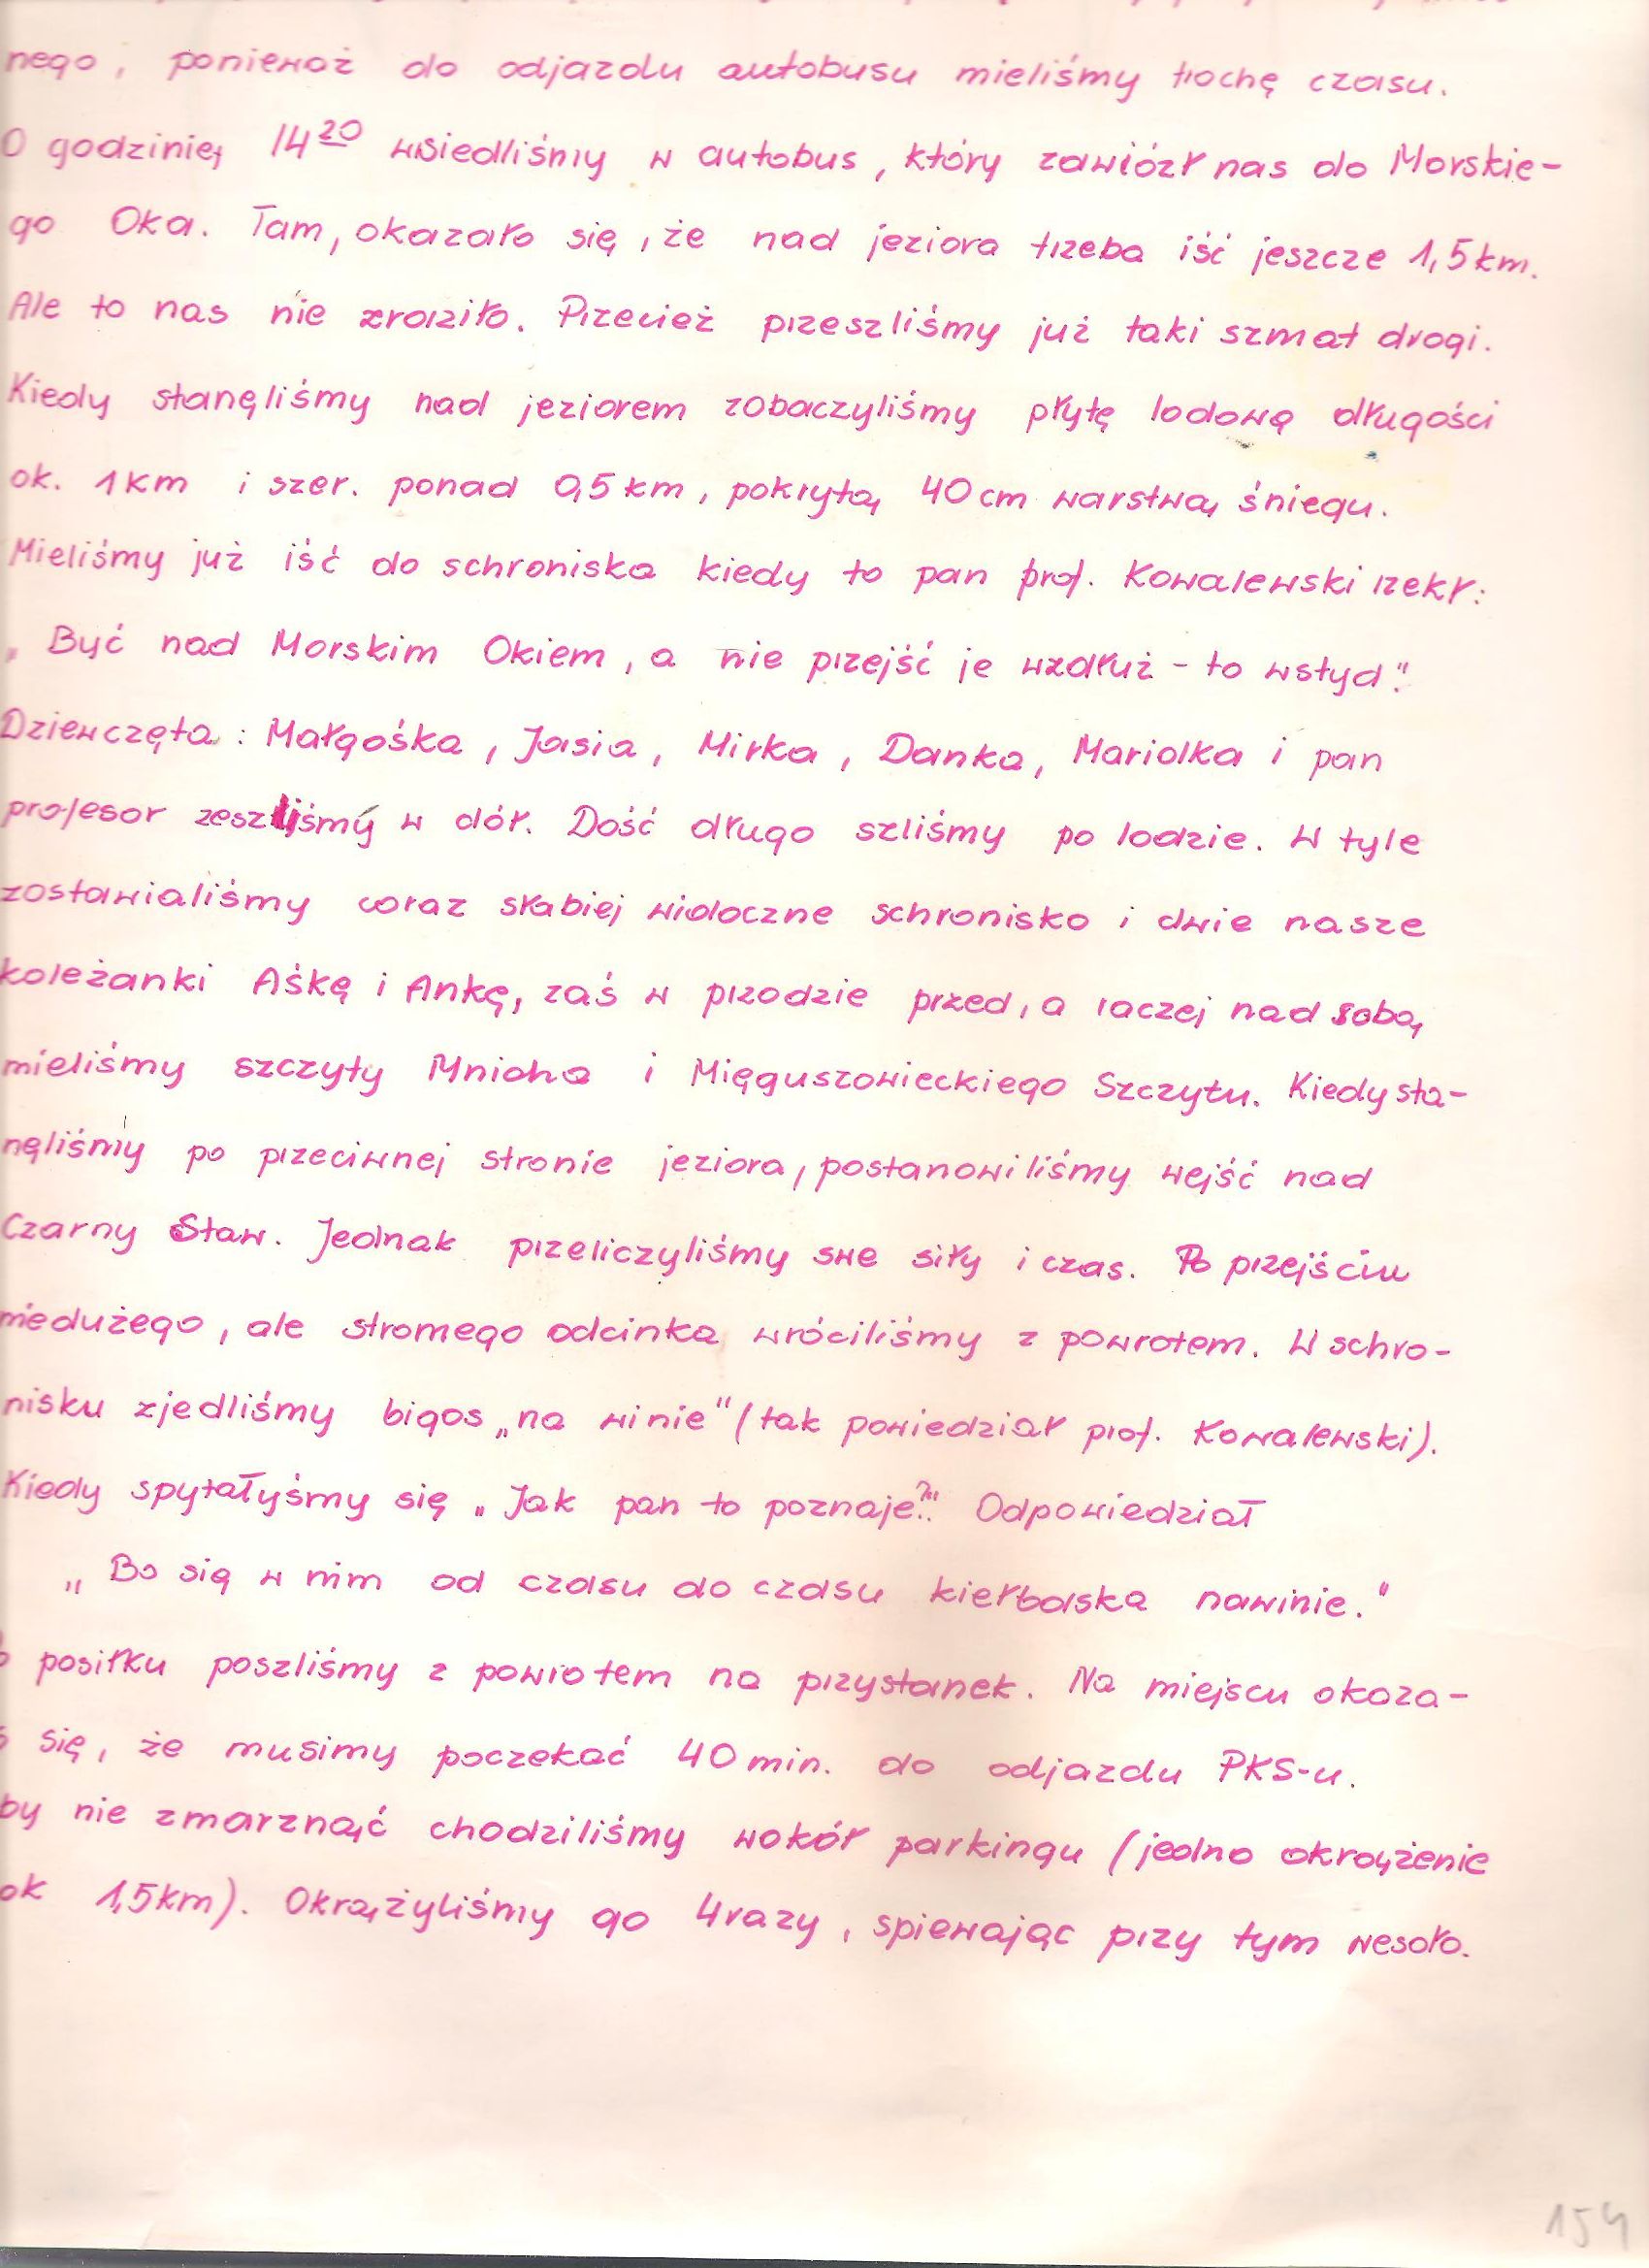 nego, ponieważ do odjazdu autobusu mieliśmy trochę czasu.
O godzinie, 14²⁰ wsiedliśmy w autobus, który zawiózł nas do Morskie-
go Oka. Tam, okazało się, że nad jeziora trzeba iść jeszcze 1,5 km.
Ale to nas nie zraziło. Przecież przeszliśmy już taki szmat drogi.
Kiedy stanęliśmy nad jeziorem zobaczyliśmy płytę lodową długości
ok. 1 km i szer. ponad 0,5 km, pokrytą 40 cm warstwą śniegu.
Mieliśmy już iść do schroniska kiedy to pan prof. Kowalewski rzekł:
„Być nad Morskim Okiem, a nie przejść je wzdłuż - to wstyd".
Dziewczęta: Małgośka, Jasia, Mirka, Danka, Mariolka i pan
profesor zeszliśmy w dół. Dość długo szliśmy po lodzie. W tyle
zostawialiśmy coraz słabiej widoczne schronisko i dwie nasze
koleżanki Aśkę i Ankę, zaś w przodzie przed, a raczej nad sobą
mieliśmy szczyty Mnicha i Mięguszowieckiego Szczytu. Kiedy sta-
nęliśmy po przeciwnej stronie jeziora, postanowiliśmy wejść nad
Czarny Staw. Jednak przeliczyliśmy swe siły i czas. Po przejściu
niedużego, ale stromego odcinka wróciliśmy z powrotem. W schro-
nisku zjedliśmy bigos „na winie" (tak powiedział prof. Kowalewski).
Kiedy spytałyśmy się „Jak pan to poznaje?". Odpowiedział
„Bo się w nim od czasu do czasu kiełbaska nawinie."
posiłku poszliśmy z powrotem na przystanek. Na miejscu okaza-
się, że musimy poczekać 40 min. do odjazdu PKS-u.
by nie zmarznąć chodziliśmy wokół parkingu (jedno okrążenie
ok 1,5 km). Okrążyliśmy go 4 razy, spiewając przy tym wesoło.
154